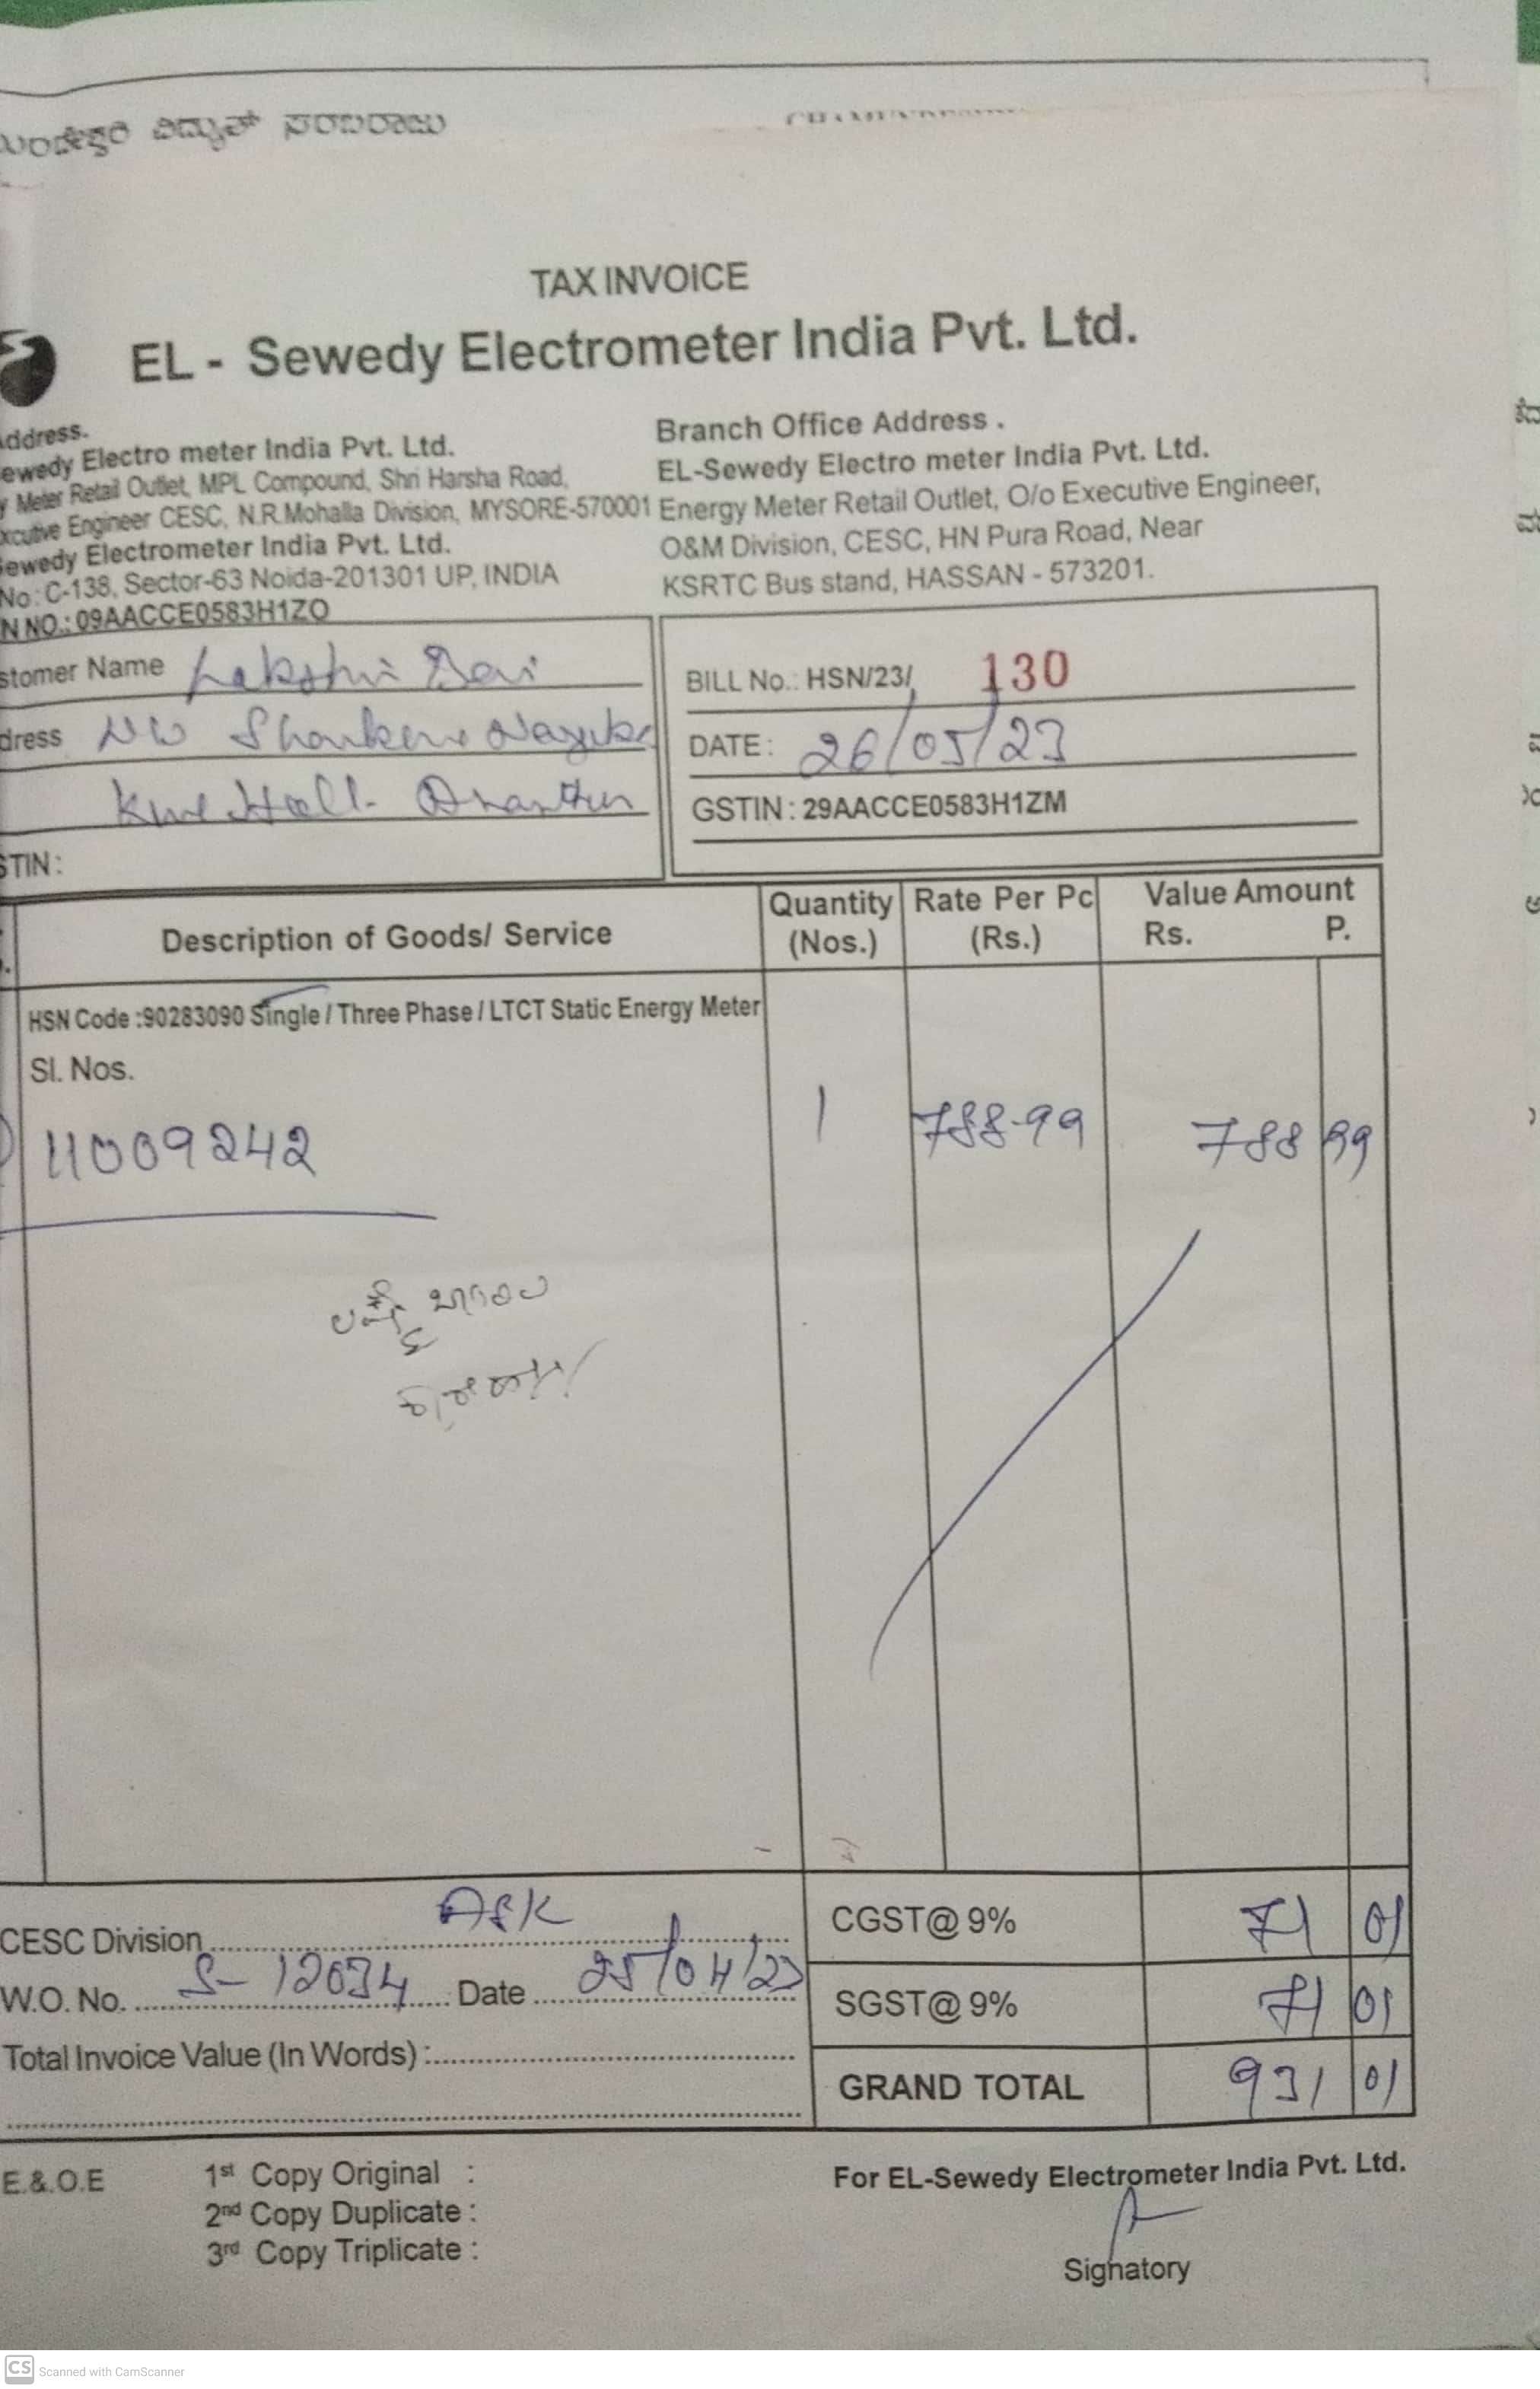 ವಿದ್ಯುತ್ ಸರಬರಾಜು
TAX INVOICE
EL - Sewedy Electrometer India Pvt. Ltd.
ddress.
ewedy Electro meter India Pvt. Ltd.
y Meter Retail Outlet, MPL Compound, Shri Harsha Road,
xcutive Engineer CESC, N.R.Mohalla Division, MYSORE-570001
ewedy Electrometer India Pvt. Ltd.
No : C-138, Sector-63 Noida-201301 UP, INDIA
N NO.: 09AACCE0583H1ZO
Branch Office Address .
EL-Sewedy Electro meter India Pvt. Ltd.
Energy Meter Retail Outlet, O/o Executive Engineer,
O&M Division, CESC, HN Pura Road, Near
KSRTC Bus stand, HASSAN - 573201.
stomer Name Lakshmi Bai
dress Shankara Nayaka
STIN :
BILL No.: HSN/23/ 130
DATE : 26/05/23
GSTIN : 29AACCE0583H1ZM
Description of Goods/ Service Quantity (Nos.) Rate Per Pc (Rs.) Value Amount Rs. P.
HSN Code :90283090 Single / Three Phase / LTCT Static Energy Meter
Sl. Nos.
11009242 1 788-99 788 99
CESC Division ASK
W.O. No. S-12034 Date 25/04/23
Total Invoice Value (In Words) :
CGST@ 9% 71 01
SGST@ 9% 71 01
GRAND TOTAL 931 01
E.&.O.E
1st Copy Original :
2nd Copy Duplicate :
3rd Copy Triplicate :
For EL-Sewedy Electrometer India Pvt. Ltd.
Signatory
CS Scanned with CamScanner